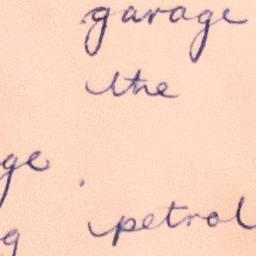 garage
the
ge
g petrol